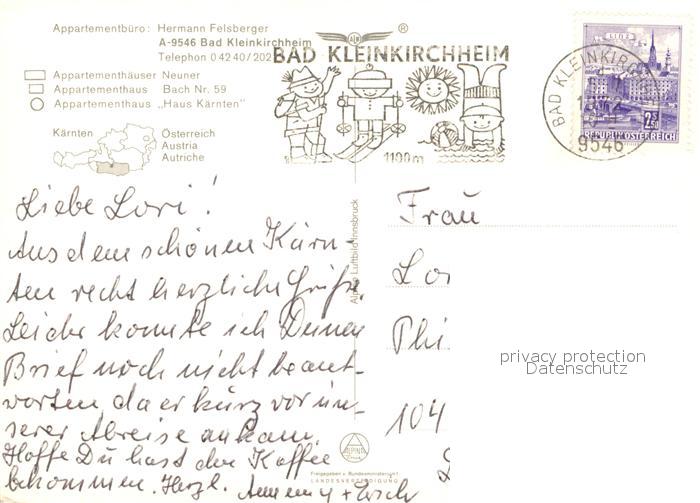 Appartementbüro: Hermann Felsberger
A-9546 Bad Kleinkirchheim
Telephon 0 42 40/202
Appartementhäuser Neuner
Appartementhaus Bach Nr. 59
Appartementhaus „Haus Kärnten"
Kärnten
Österreich
Austria
Autriche
®
BAD KLEINKIRCHHEIM
1100m
LINZ
2.50
REPUBLIK ÖSTERREICH
BAD KLEINKIRCH
9546
Liebe Lori!
Aus dem schönen Kärn-
ten recht herzliche Grüße.
Leider konnte ich Deinen
Brief noch nicht beant-
worten, da er kurz vor un-
serer Abreise ankam.
Hoffe Du hast den Kaffee
bekommen. Herzl.
Alpine Luftbild Innsbruck
ALPINE
Freigegeben v. Bundesministerium f.
LANDESVERTEIDIGUNG
Frau
Lo
Phi
104
privacy protection
Datenschutz